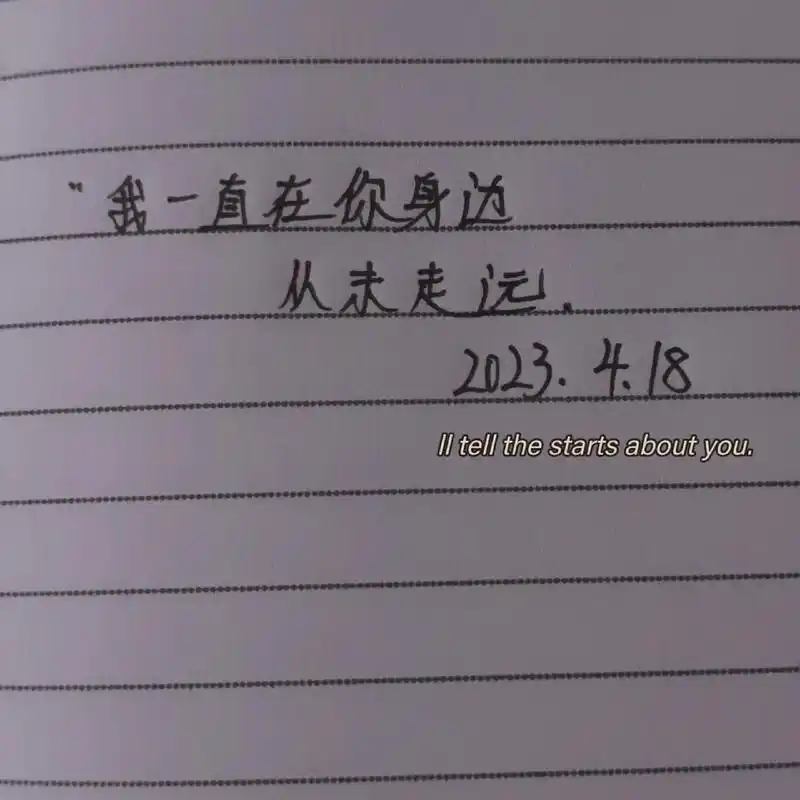 "我一直在你身边
从未走远.
2023.4.18
ll tell the starts about you.